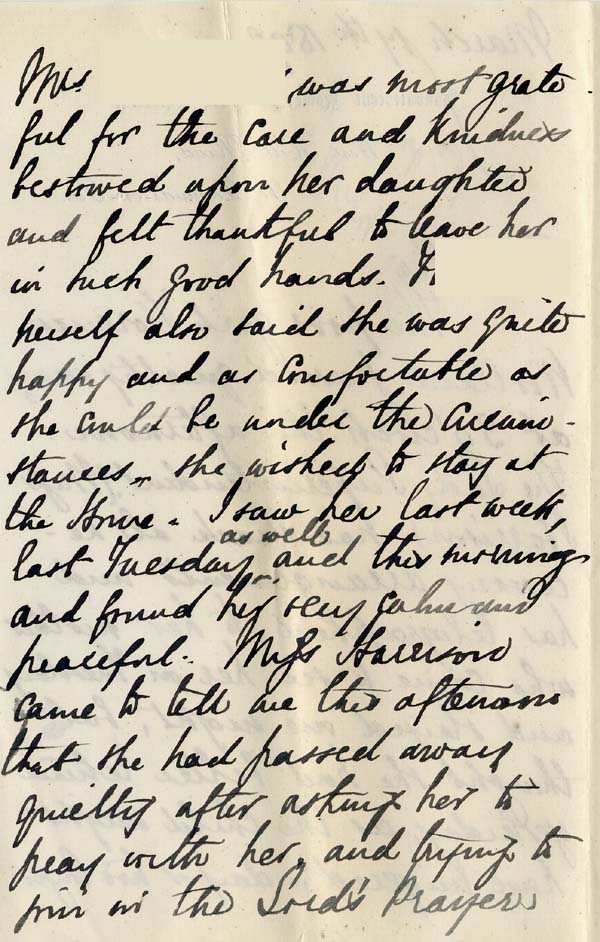 Mrs was most grate
ful for the care and kindness
bestowed upon her daughter
and felt thankful to leave her
in such good hands.
herself also said she was quite
happy and as comfortable as
she could be under the circum-
stances, she wished to stay at
the Home. I saw her last week,
last Tuesday as well and this morning
and found her very calm and
peaceful. Miss Harrison
came to tell me this afternoon
that she had passed away
quietly after asking her to
pray with her, and trying to
join in the Lord's Prayer